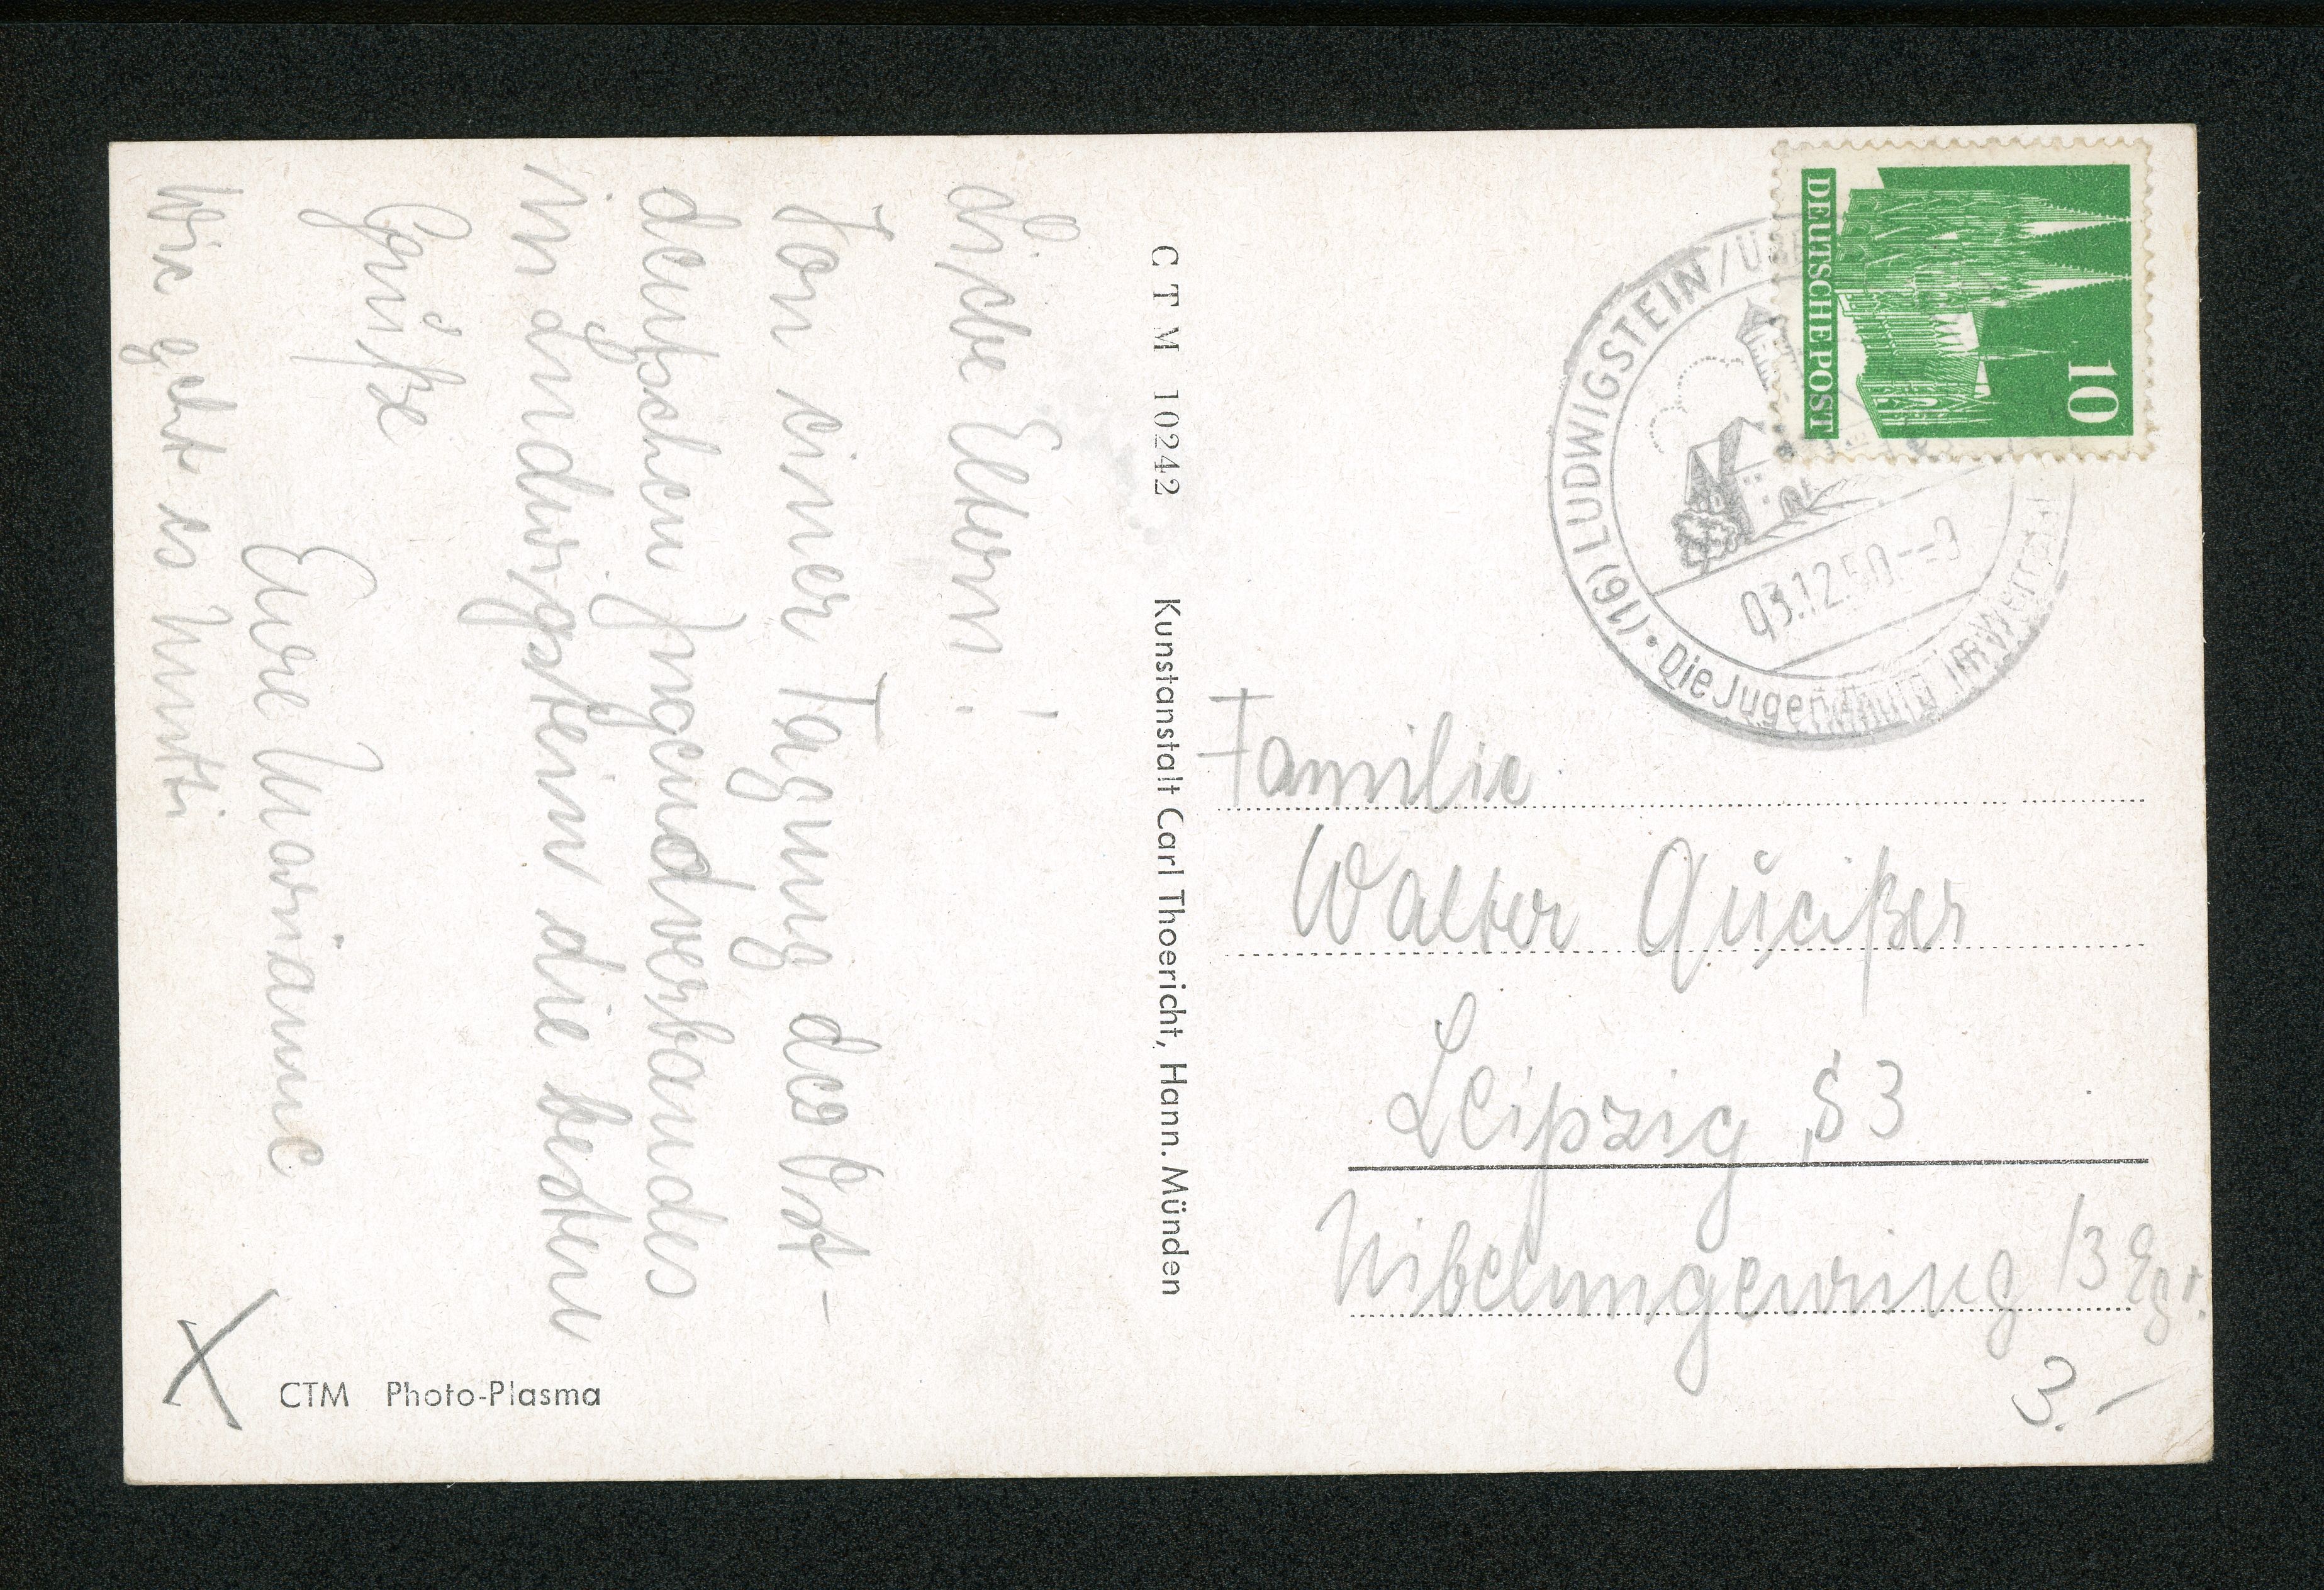 Liebe Eltern!
Von einer Tagung des Ost-
deutschen Jugendverbandes
in Ludwigstein die besten
Grüße
Eure Marianne
Wie geht es Mutti
CTM Photo-Plasma
CTM 10242 Kunstanstalt Carl Thoericht, Hann. Münden
10
DEUTSCHE POST
(16) LUDWIGSTEIN/Ü
03.12.50--9
Die Jugendburg im Werratal
Familie
Walter Queißer
Leipzig S3
Nibelungenring 13 Eg r.
3.-